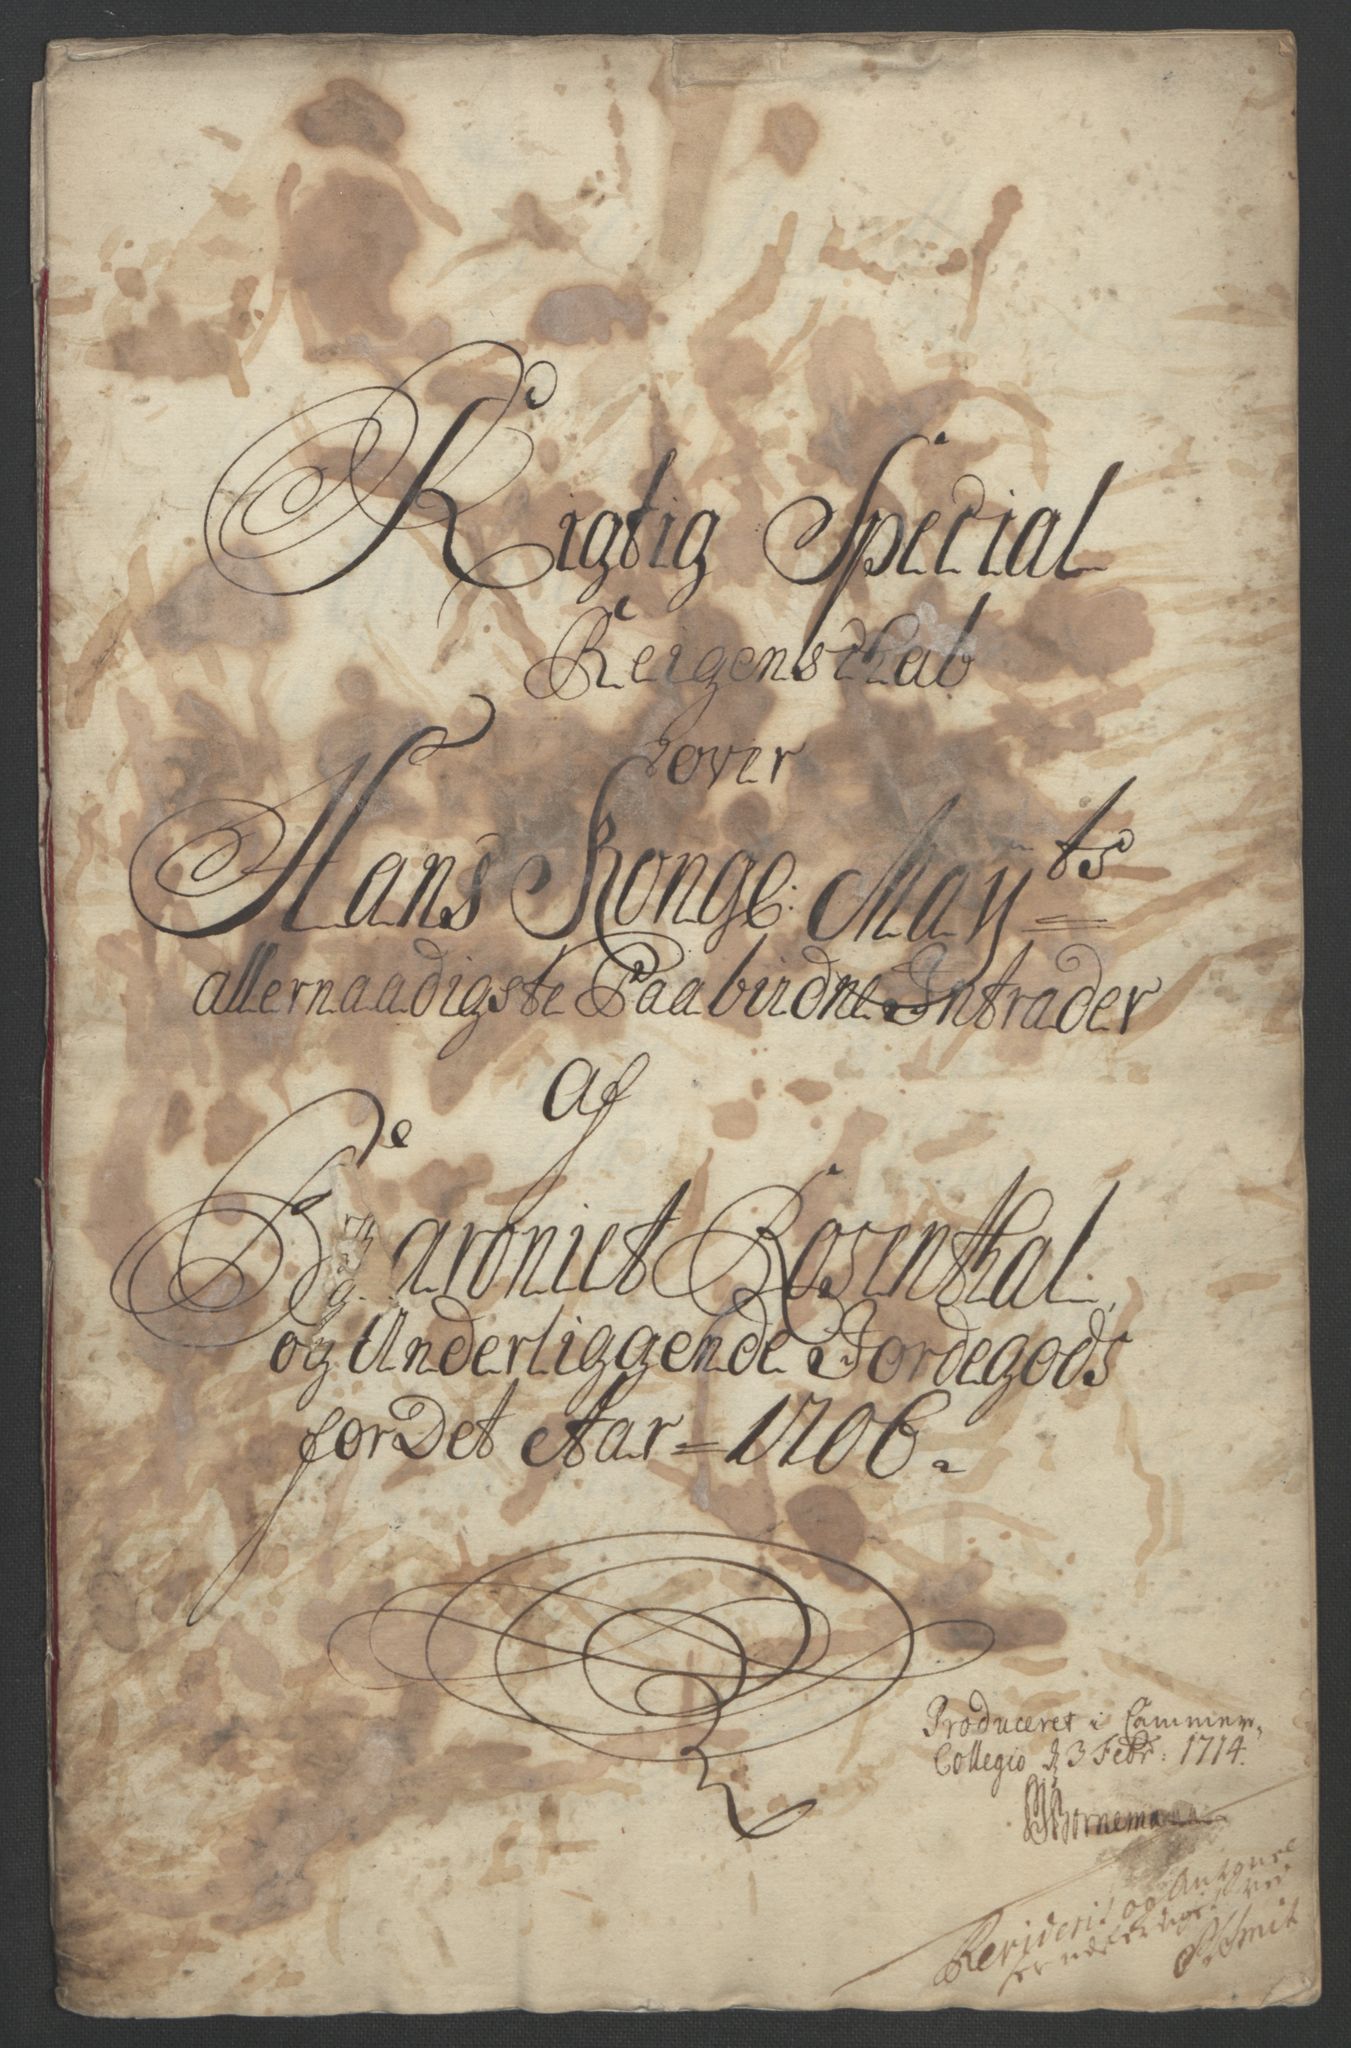 Rigtig Special
Reigenschab
over
Hans Kongl: May:ts
allernaadigste Paabudne Intrader
af
Baroniet Rosenthal
og Underliggende Jordegods
for Det Aar = 1706.
Produceret i Cammer-
Collegio d 3 Febr: 1714.
Bornemann
Reviderit og Antegnelse
er udferdiget ved
Smit